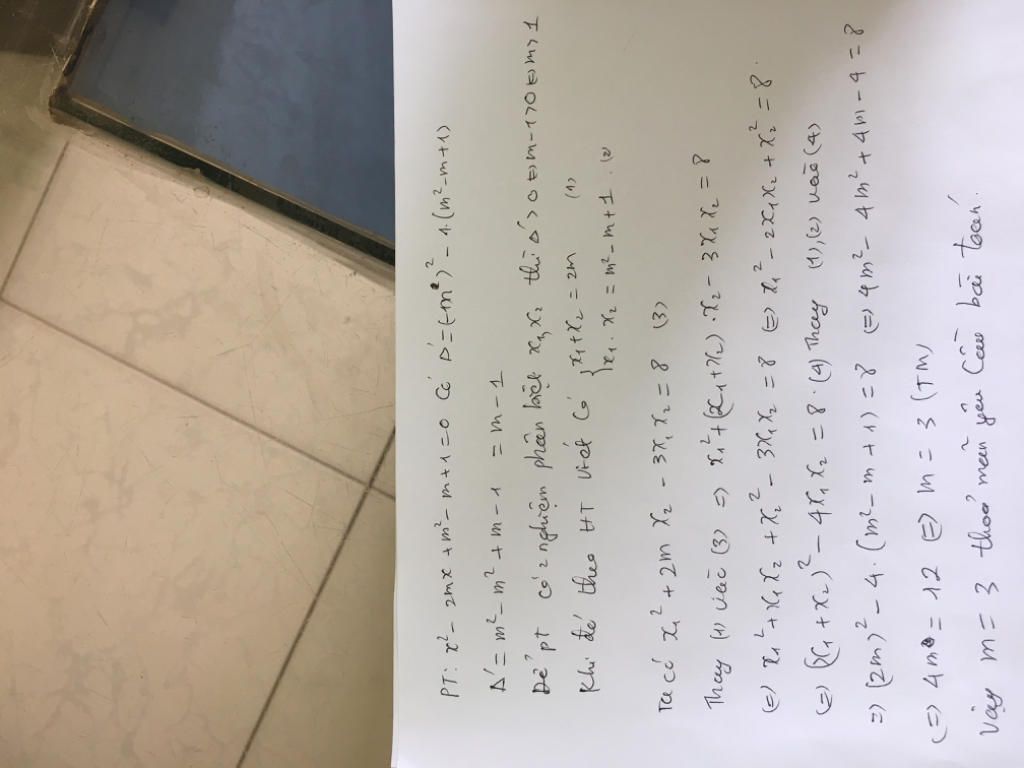 PT: x² - 2mx + m² - m + 1 = 0 Có Δ' = (-m)² - 1.(m² - m + 1)
Δ' = m² - m² + m - 1 = m - 1
Để pt có 2 nghiệm phân biệt x₁, x₂ thì Δ' > 0 ⇔ m - 1 > 0 ⇔ m > 1
Khi đó theo HT Viét có { x₁ + x₂ = 2m (1)
x₁ . x₂ = m² - m + 1 . (2)
Ta có x₁² + 2m x₂ - 3x₁x₂ = 8 (3)
Thay (1) vào (3) => x₁² + (x₁ + x₂) . x₂ - 3x₁x₂ = 8
(=) x₁² + x₁x₂ + x₂² - 3x₁x₂ = 8 (=) x₁² - 2x₁x₂ + x₂² = 8 .
(=) (x₁ + x₂)² - 4x₁x₂ = 8 . (4) Thay (1),(2) vào (4)
=) (2m)² - 4 . (m² - m + 1) = 8 (=) 4m² - 4m² + 4m - 4 = 8
(=) 4m = 12 (=) m = 3 (TM)
Vậy m = 3 thoả mãn yêu cầu bài toán.